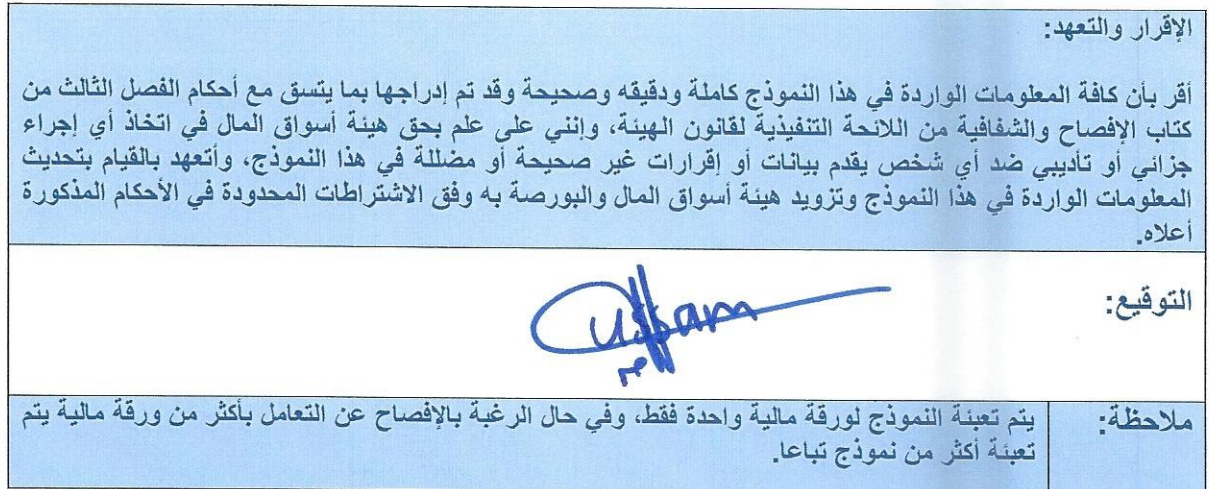 الإقرار والتعهد:
أقر بأن كافة المعلومات الواردة في هذا النموذج كاملة ودقيقه وصحيحة وقد تم إدراجها بما يتسق مع أحكام الفصل الثالث من
كتاب الإفصاح والشفافية من اللائحة التنفيذية لقانون الهيئة، وإنني على علم بحق هيئة أسواق المال في اتخاذ أي إجراء
جزائي أو تأديبي ضد أي شخص يقدم بيانات أو إقرارات غير صحيحة أو مضللة في هذا النموذج، وأتعهد بالقيام بتحديث
المعلومات الواردة في هذا النموذج وتزويد هيئة أسواق المال والبورصة به وفق الاشتراطات المحدودة في الأحكام المذكورة
أعلاه.
التوقيع:
ملاحظة: يتم تعبئة النموذج لورقة مالية واحدة فقط، وفي حال الرغبة بالإفصاح عن التعامل بأكثر من ورقة مالية يتم
تعبئة أكثر من نموذج تباعا.